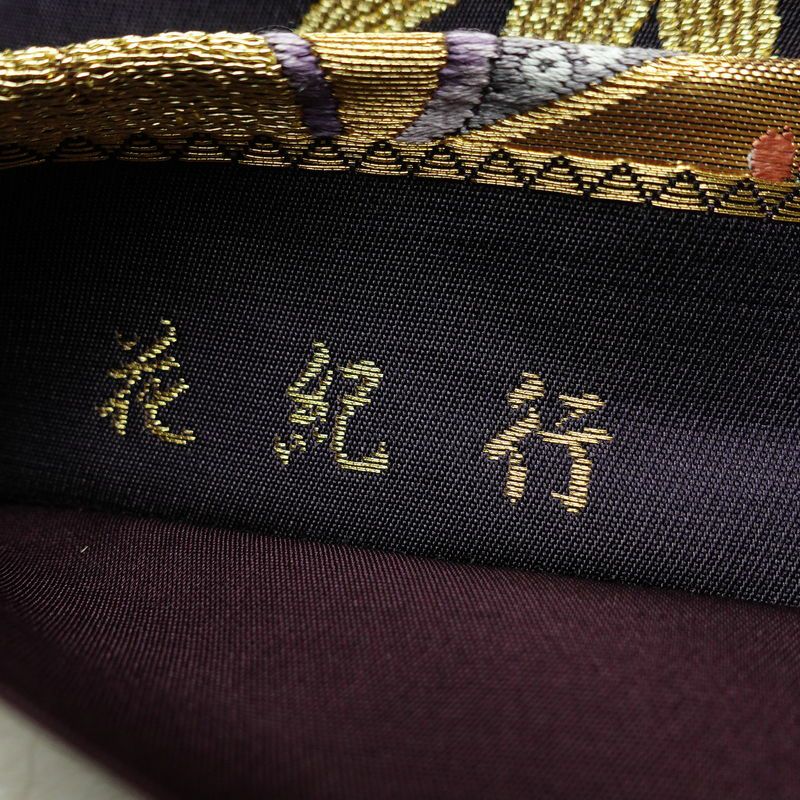 花紀行